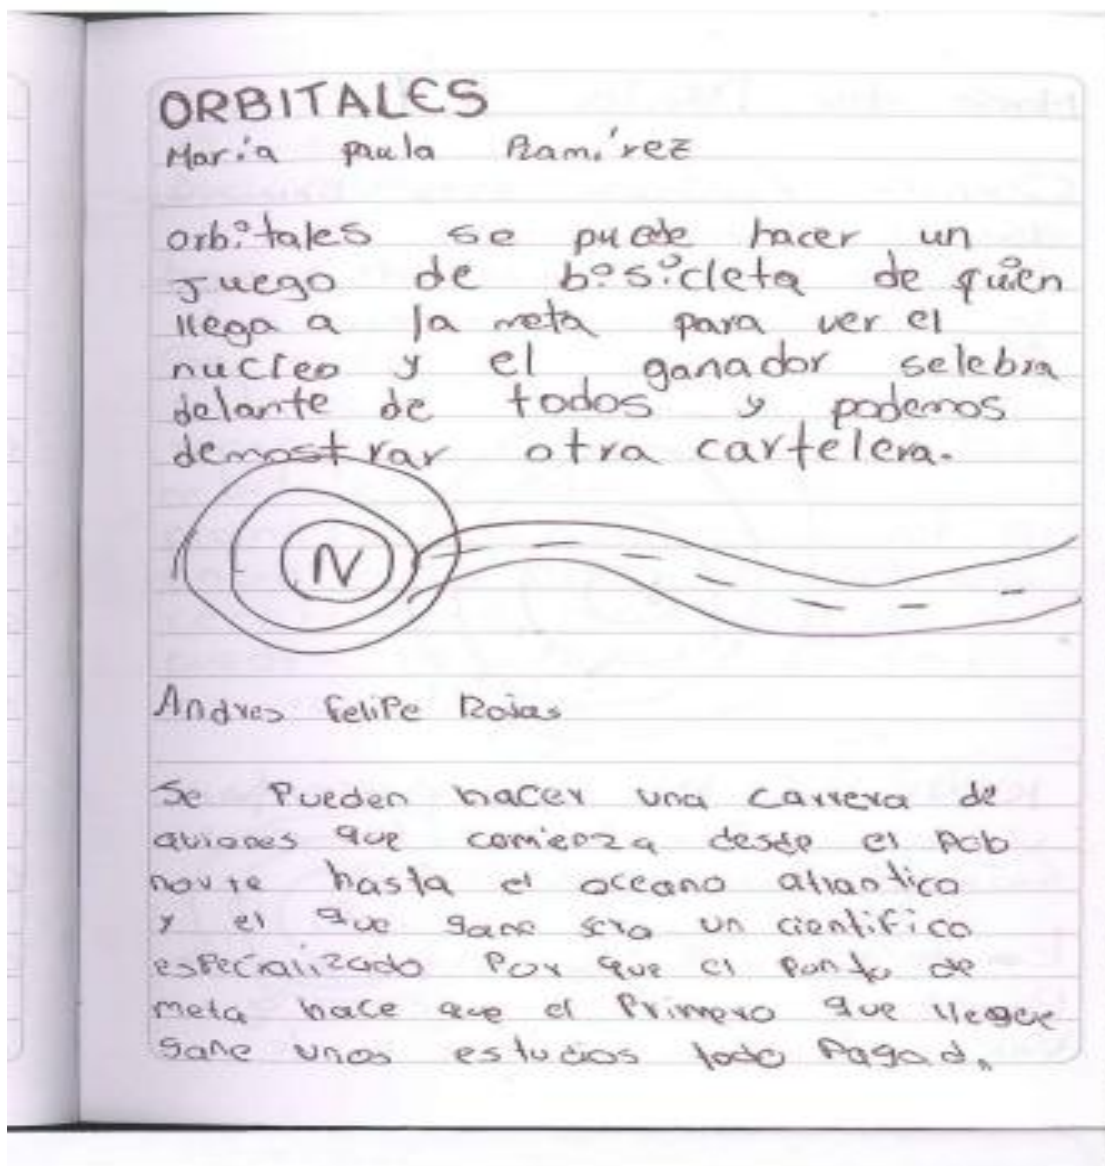 ORBITALES
María paula Ramírez
orbitales se puede hacer un
juego de bisicleta de quien
llega a la meta para ver el
nucleo y el ganador selebra
delante de todos y podemos
demostrar otra cartelera.
N
Andres Felipe Rojas
Se Pueden hacer una carrera de
aviones que comienza desde el Polo
norte hasta el oceano atlantico
y el que gane sera un cientifico
especializado Por que el Punto de
meta hace que el Primero que llegue
gane unos estudios todo Pagad.